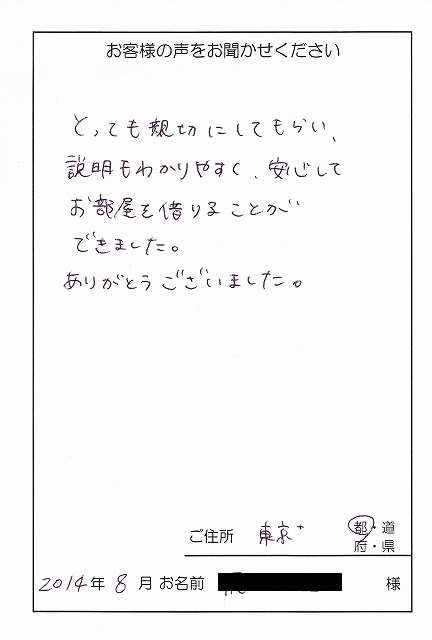 お客様の声をお聞かせください
とっても親切にしてもらい、
説明もわかりやすく、安心して
お部屋を借りることが
できました。
ありがとうございました。
ご住所 東京 都・道
府・県
2014年 8月 お名前 様